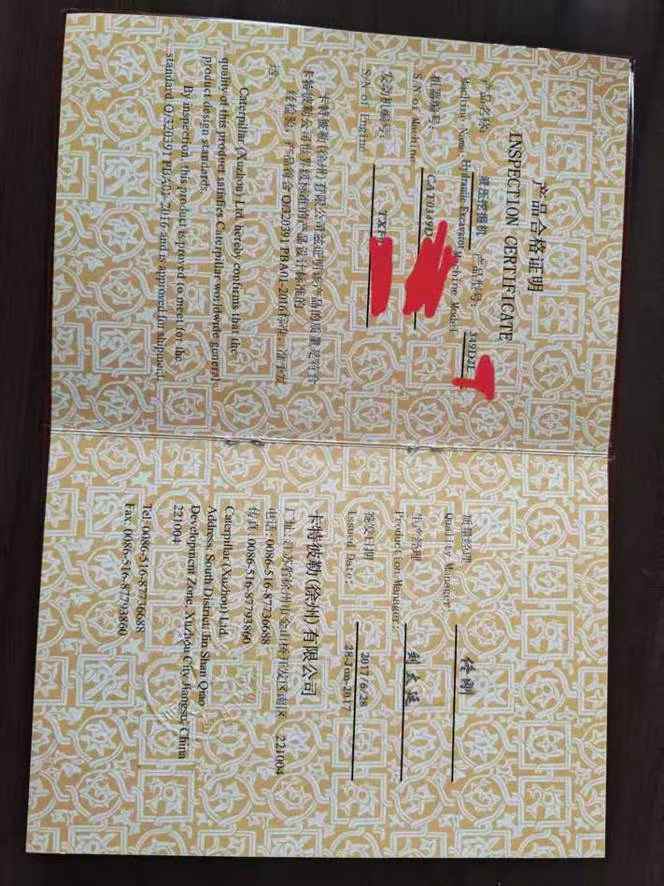 产品合格证明
INSPECTION CERTIFICATE
产品名称: 液压挖掘机 产品型号:
Machine Name: Hydraulic Excavator Machine Model: 349D2L
机器编号:
S/N of Machine: CAT0349D
发动机编号:
S/N of Engine: TXF
卡特彼勒(徐州)有限公司兹证明该产品的质量是符合
卡特彼勒全球性等级标准的产品设计标准的。
经检验,产品符合Q/320391 PBA01-2016标准,准予发
运
Caterpillar (Xuzhou) Ltd. hereby confirms that the
quality of this product satisfies Caterpillar worldwide general
product design standards.
By inspection, this product is proved to meet for the
standard Q/320391 PBA01-2016 and is approved for shipment.
质量经理
Quality Manager: 佟刚
生产经理
Production Manager: 刘太延
签发日期 2017/6/28
Issued Date: 28-Jun-2017
卡特彼勒(徐州)有限公司
厂址:江苏省徐州市金山桥开发区南区 221004
电话:0086-516-87736688
传真:0086-516-87793860
Caterpillar (Xuzhou) Ltd.
Address: South District, Jin Shan Qiao
Development Zone, Xuzhou City, Jiangsu, China
221004
Tel: 0086-516-87736688
Fax: 0086-516-87793860